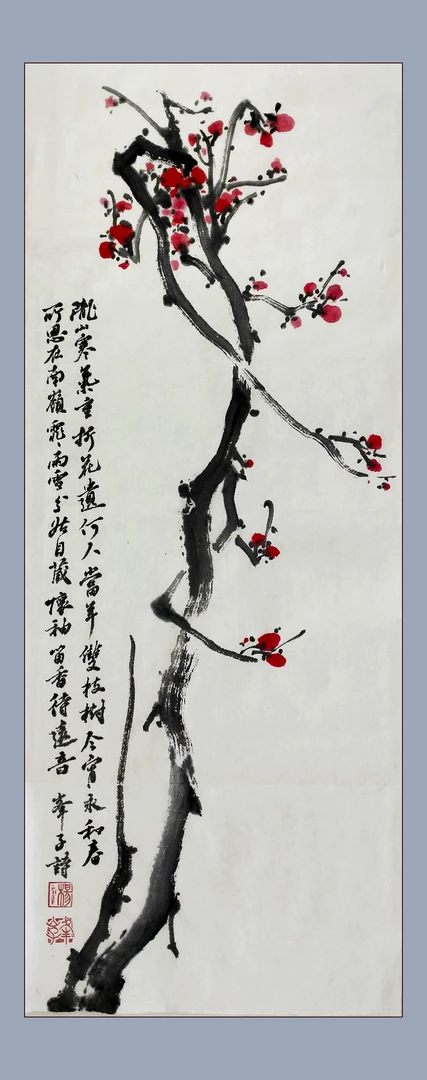 隴山寒氣重折花遺何人當年雙枝樹今宵永和春
所思在南嶺霏〻雨雪分姑且藏懷袖留香待遠音 峯子詩